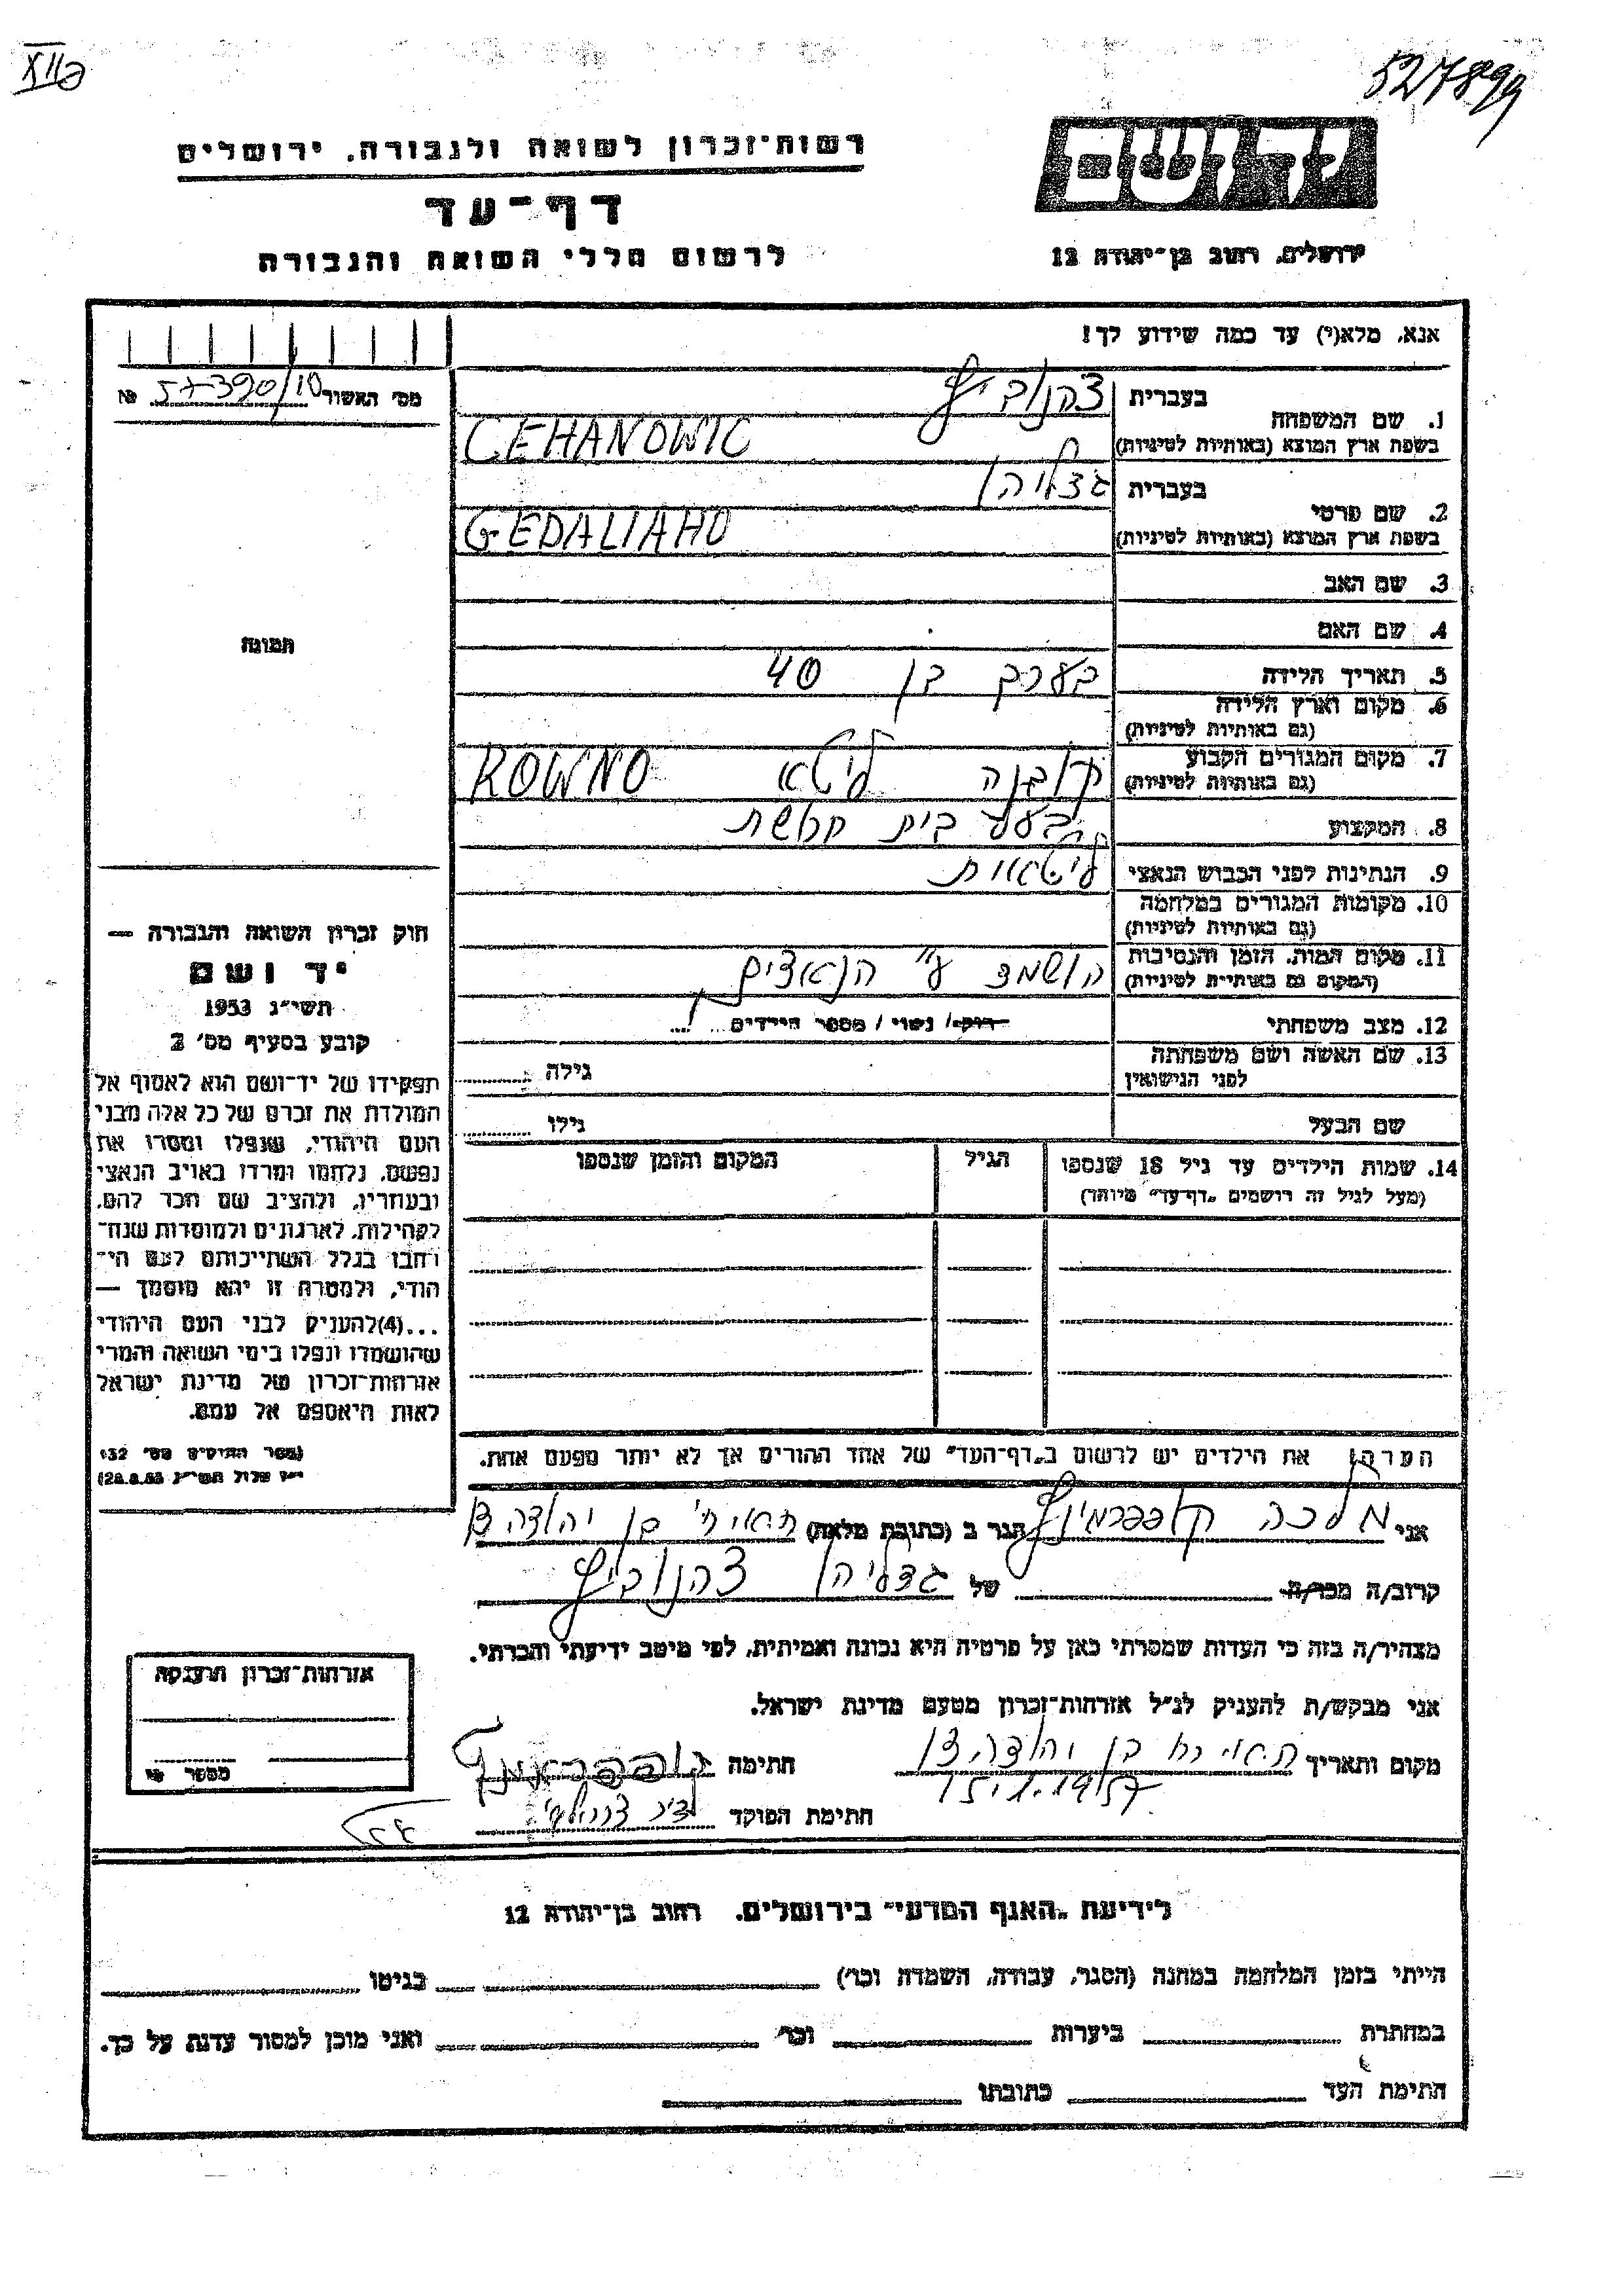 XII
527899
יד ושם
רשות־זכרון לשואה ולגבורה, ירושלים
דף־עד
ירושלים, רחוב בן־יהודה 12
לרשום חללי השואה והגבורה
אנא, מלא(י) עד כמה שידוע לך!
מס׳ האשור 57390/10 №
1. שם המשפחה
בעברית צהנוביץ
בשפת ארץ המוצא (באותיות לטיניות) CEHANOWIC
2. שם פרטי
בעברית גדליהו
בשפת ארץ המוצא (באותיות לטיניות) GEDALIAHO
3. שם האב
4. שם האם
תמונה
5. תאריך הלידה בערך בן 40
6. מקום וארץ הלידה
(גם באותיות לטיניות)
7. מקום המגורים הקבוע קובנה ליטא KOWNO
(גם באותיות לטיניות)
8. המקצוע בעל בית חרושת
9. הנתינות לפני הכבוש הנאצי ליטאית
10. מקומות המגורים במלחמה
(גם באותיות לטיניות)
11. מקום המות, הזמן והנסיבות הושמד ע״י הנאצים
(המקום גם באותיות לטיניות)
12. מצב משפחתי רוק / נשוי / מספר הילדים
13. שם האשה ושם משפחתה גילה
לפני הנישואין
שם הבעל גילו
14. שמות הילדים עד גיל 18 שנספו הגיל המקום והזמן שנספו
(מעל לגיל זה רושמים „דף־עד״ מיוחד)
חוק זכרון השואה והגבורה —
יד ושם
תשי״ג 1953
קובע בסעיף מס׳ 2
תפקידו של יד־ושם הוא לאסוף אל
המולדת את זכרם של כל אלה מבני
העם היהודי, שנפלו ומסרו את
נפשם, נלחמו ומרדו באויב הנאצי
ובעוזריו, ולהציב שם וזכר להם,
לקהילות, לארגונים ולמוסדות שנח־
רבו בגלל השתייכותם לעם הי־
הודי, ולמטרה זו יהא מוסמך —
...(4)להעניק לבני העם היהודי
שהושמדו ונפלו בימי השואה והמרי
אזרחות־זכרון של מדינת ישראל
לאות היאספם אל עמם.
(ספר החוקים מס׳ 132
י״ז אלול תשי״ג 28.8.53)
הערה: את הילדים יש לרשום ב„דף־העד״ של אחד ההורים אך לא יותר מפעם אחת.
אני מלכה קופפרמינץ הגר ב (כתובת מלאה) בן יהודה
קרוב/ה מכר/ה של גדליהו צהנוביץ
מצהיר/ה בזה כי העדות שמסרתי כאן על פרטיה היא נכונה ואמיתית, לפי מיטב ידיעתי והכרתי.
אני מבקש/ת להעניק לנ״ל אזרחות־זכרון מטעם מדינת ישראל.
מקום ותאריך בן יהודה חתימה
15.1.1957
חתימת הפוקד
אזרחות־זכרון הוענקה
מספר
לידיעת „האגף המדעי״ בירושלים, רחוב בן־יהודה 12
הייתי בזמן המלחמה במחנה (הסגר, עבודה, השמדה וכו׳) בגיטו
במחתרת ביערות וכו׳ ואני מוכן למסור עדות על כך.
חתימת העד כתובתו